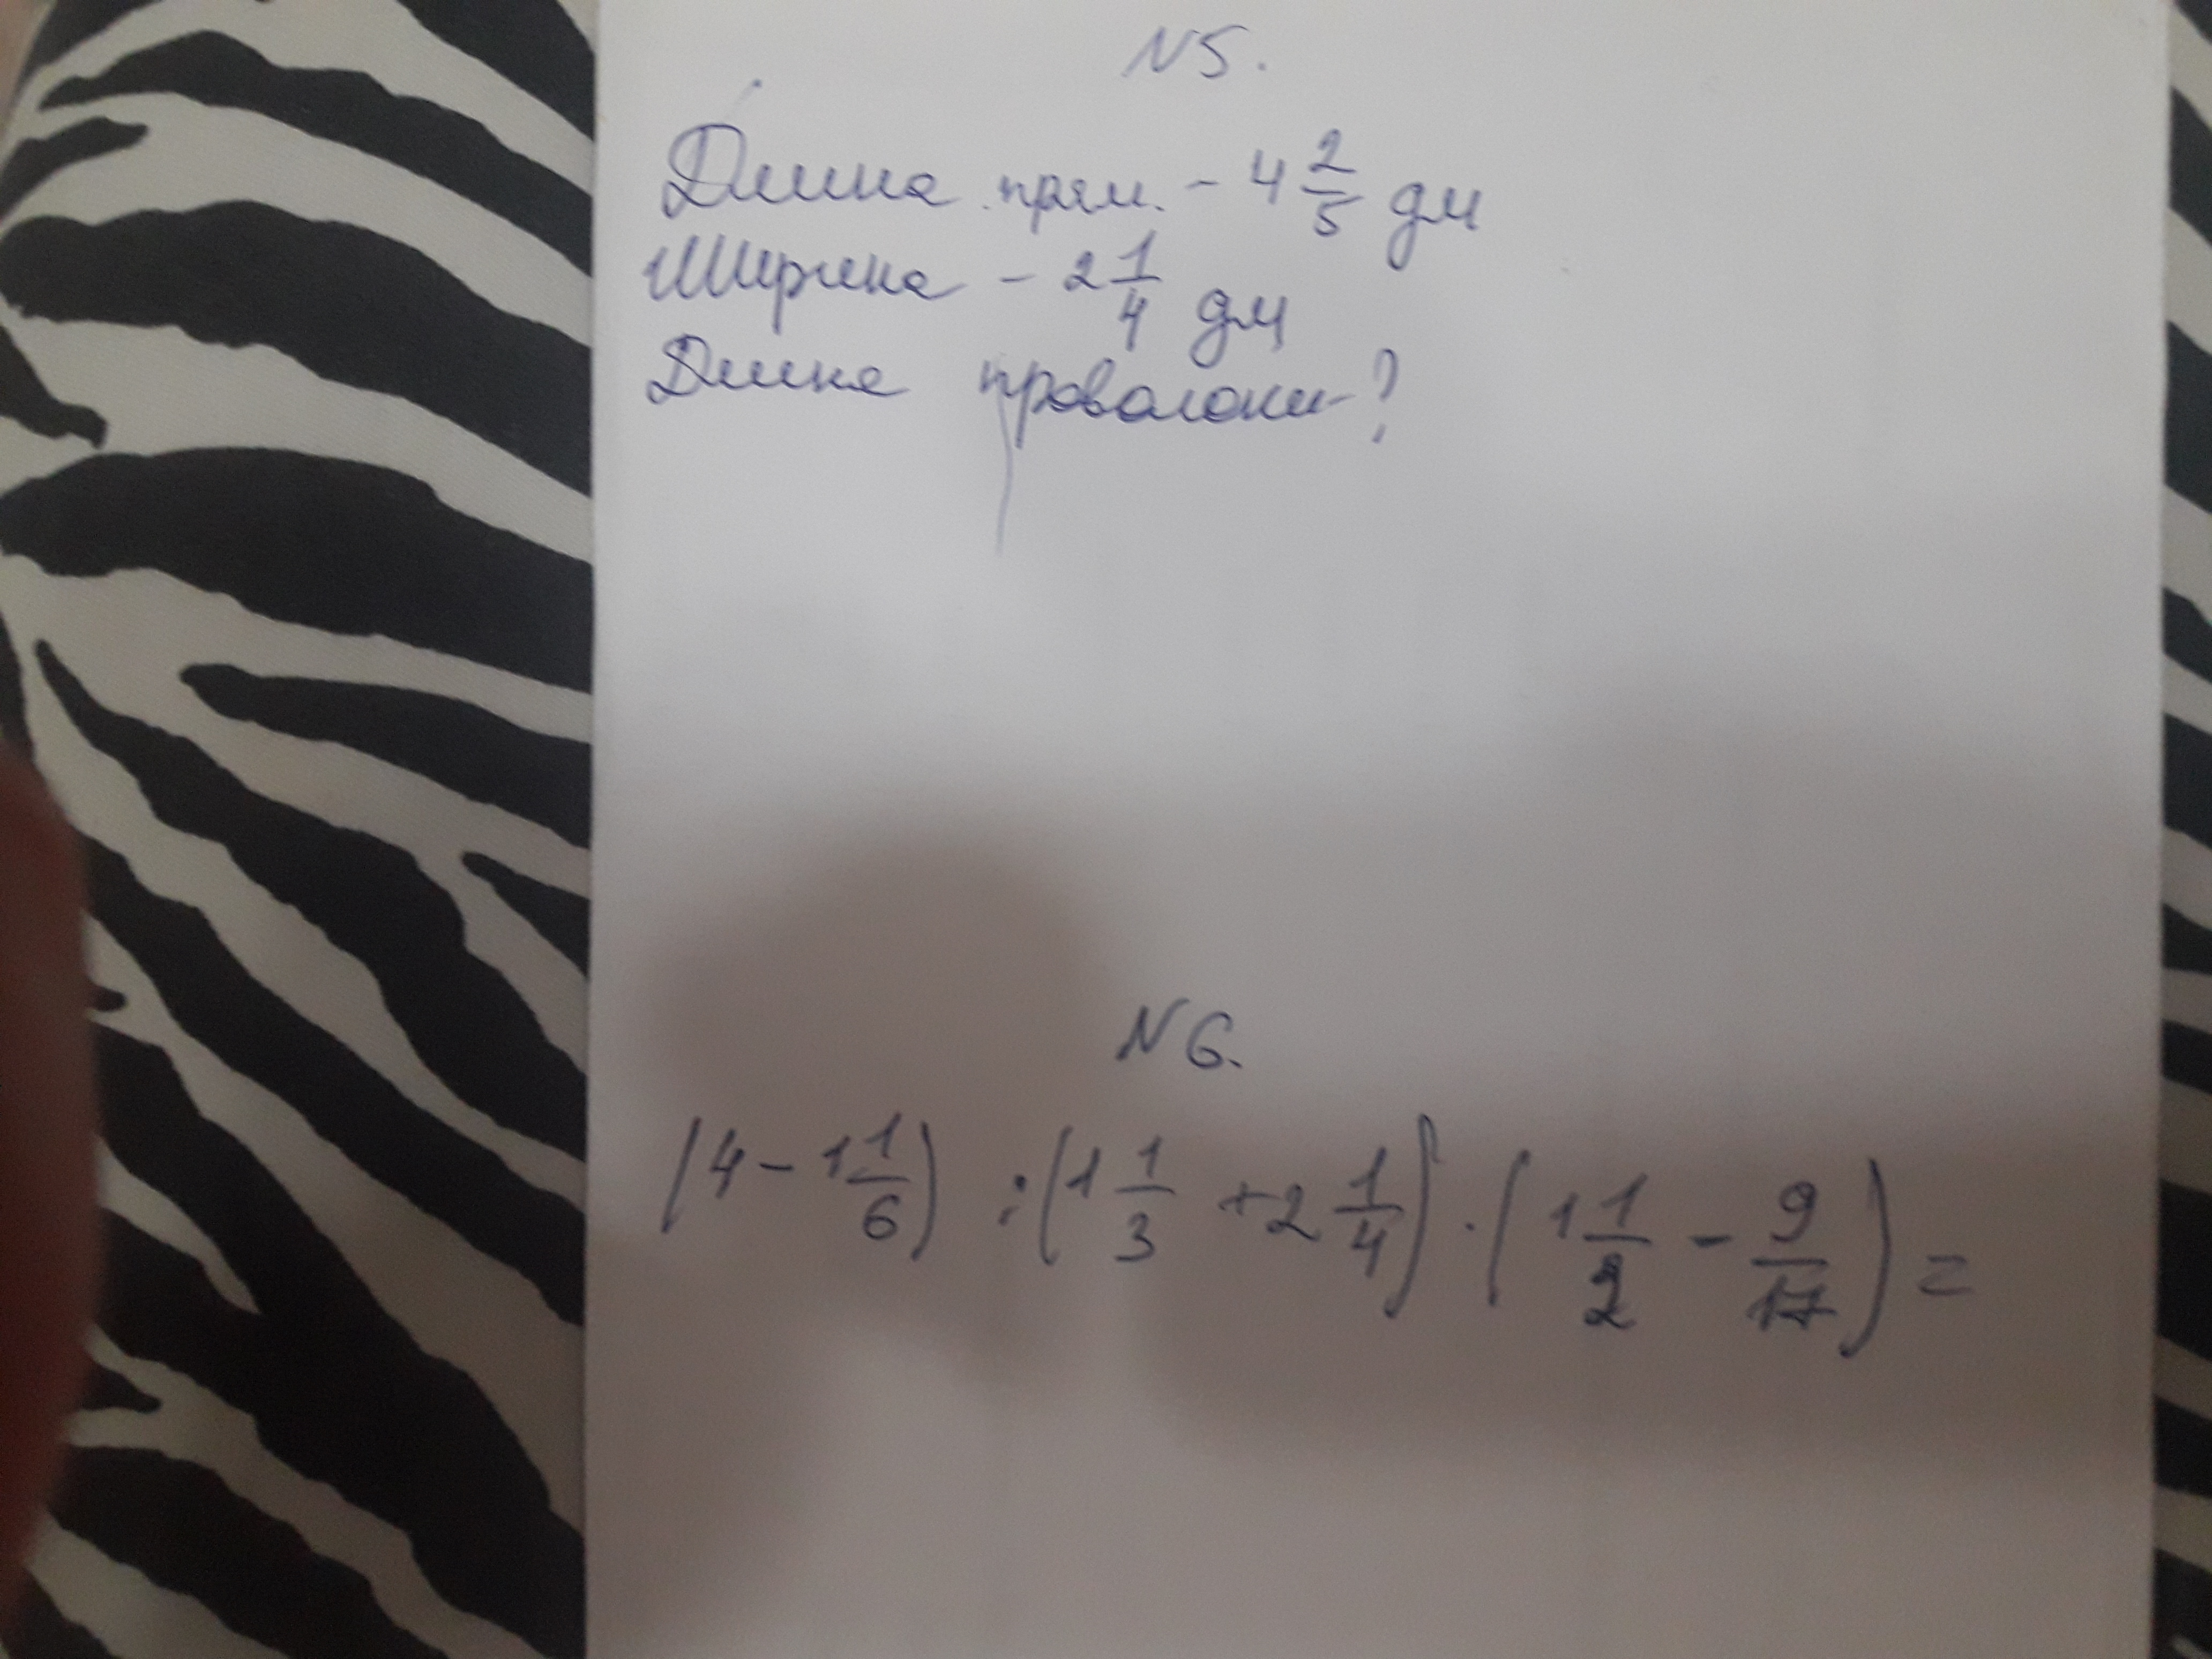 N5.
Длина прям. - 4 2/5 дм
Ширина - 2 1/4 дм
Длина проволоки - ?
N6.
(4 - 1 1/6) : (1 1/3 + 2 1/4) · (1 1/2 - 9/17) =